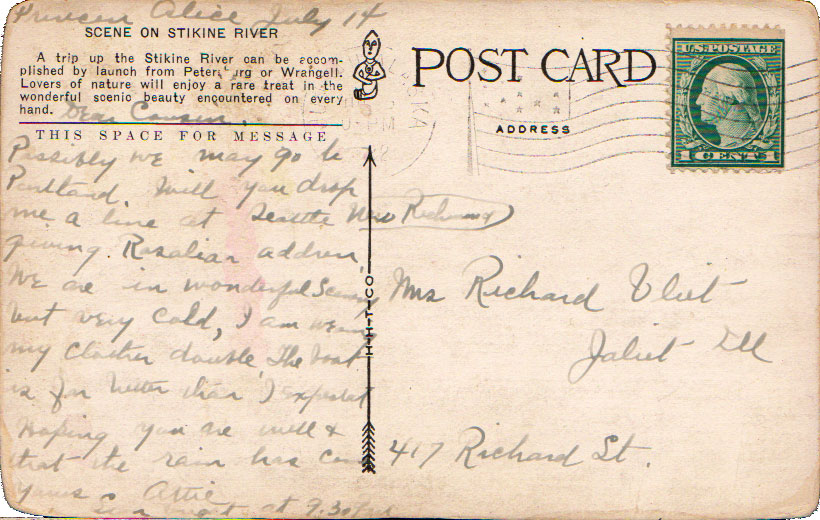 Princess Alice July 14
SCENE ON STIKINE RIVER
A trip up the Stikine River can be accom-
plished by launch from Petersburg or Wrangell.
Lovers of nature will enjoy a rare treat in the
wonderful scenic beauty encountered on every
hand.
Dear Cousin,
THIS SPACE FOR MESSAGE
Possibly we may go to
Portland. Will you drop
me a line at Seattle New Richmond
giving Rosalias address,
We are in wonderful Scenery
but very cold, I am wearing
my clothes double, The boat
is far better than I expected
Hoping you are well &
that the rain has come
yours Attie
at 9.30 PM
POST CARD
ADDRESS
U.S. POSTAGE
1 CENT 1
H-H-T-CO
Mrs Richard Vliet
Joliet Ill
417 Richard St.